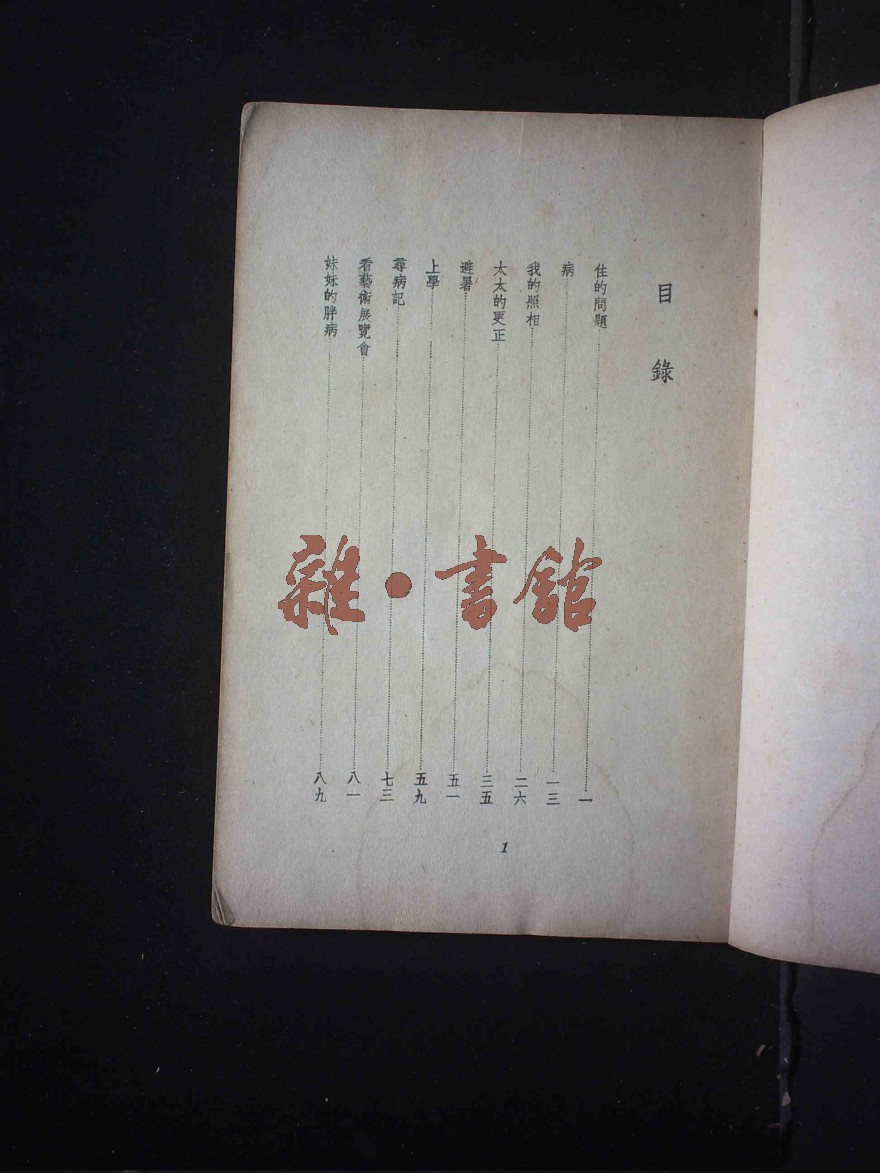 目錄
住的問題 一
病 一三
我的照相 二六
太太的更正 三五
避暑 五一
上學 五九
尋病記 七三
看藝術展覽會 八一
妹妹的胖病 八九
1
雜·書館